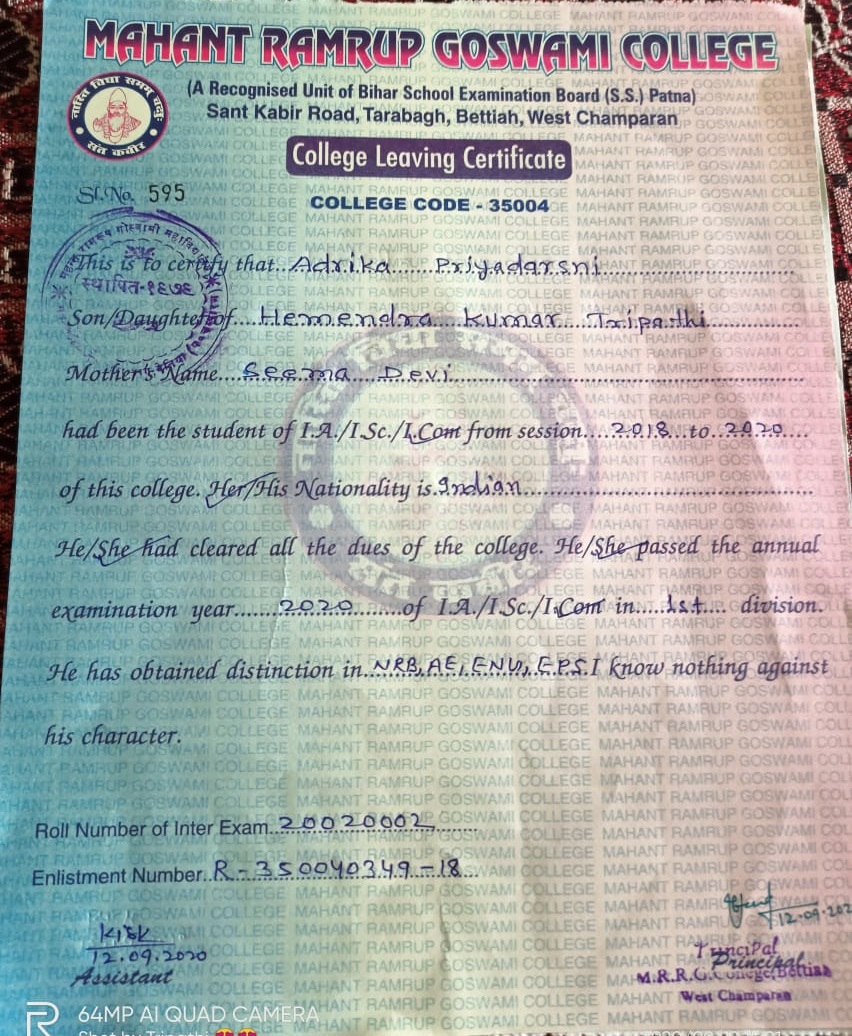 MAHANT RAMRUP GOSWAMI COLLEGE
(A Recognised Unit of Bihar School Examination Board (S.S.) Patna)
Sant Kabir Road, Tarabagh, Bettiah, West Champaran
नास्ति विद्या समम् चक्षु
संत कबीर
College Leaving Certificate
Sl. No. 595
COLLEGE CODE - 35004
स्थापित-१९७६
This is to certify that..Adrika......Priyadarsni
Son/Daughter of....Hemendra Kumar Tripathi
Mother's Name....Seema Devi
had been the student of I.A./I.Sc./I.Com from session....2018...to..2020....
of this college. Her/His Nationality is.Indian
He/She had cleared all the dues of the college. He/She passed the annual
examination year.......2020........of I.A./I.Sc./I.Com in.....1st.... division.
He has obtained distinction in..NRB, AE, ENU, E.P.S.I know nothing against
his character.
Roll Number of Inter Exam..20020002
Enlistment Number..R-350040349-18...
12.09.202
12.09.2020
Assistant
Principal
Principal
M.R.R.G. College, Bettiah
West Champaran
64MP AI QUAD CAMERA
Shot by Tripathi 😍😍